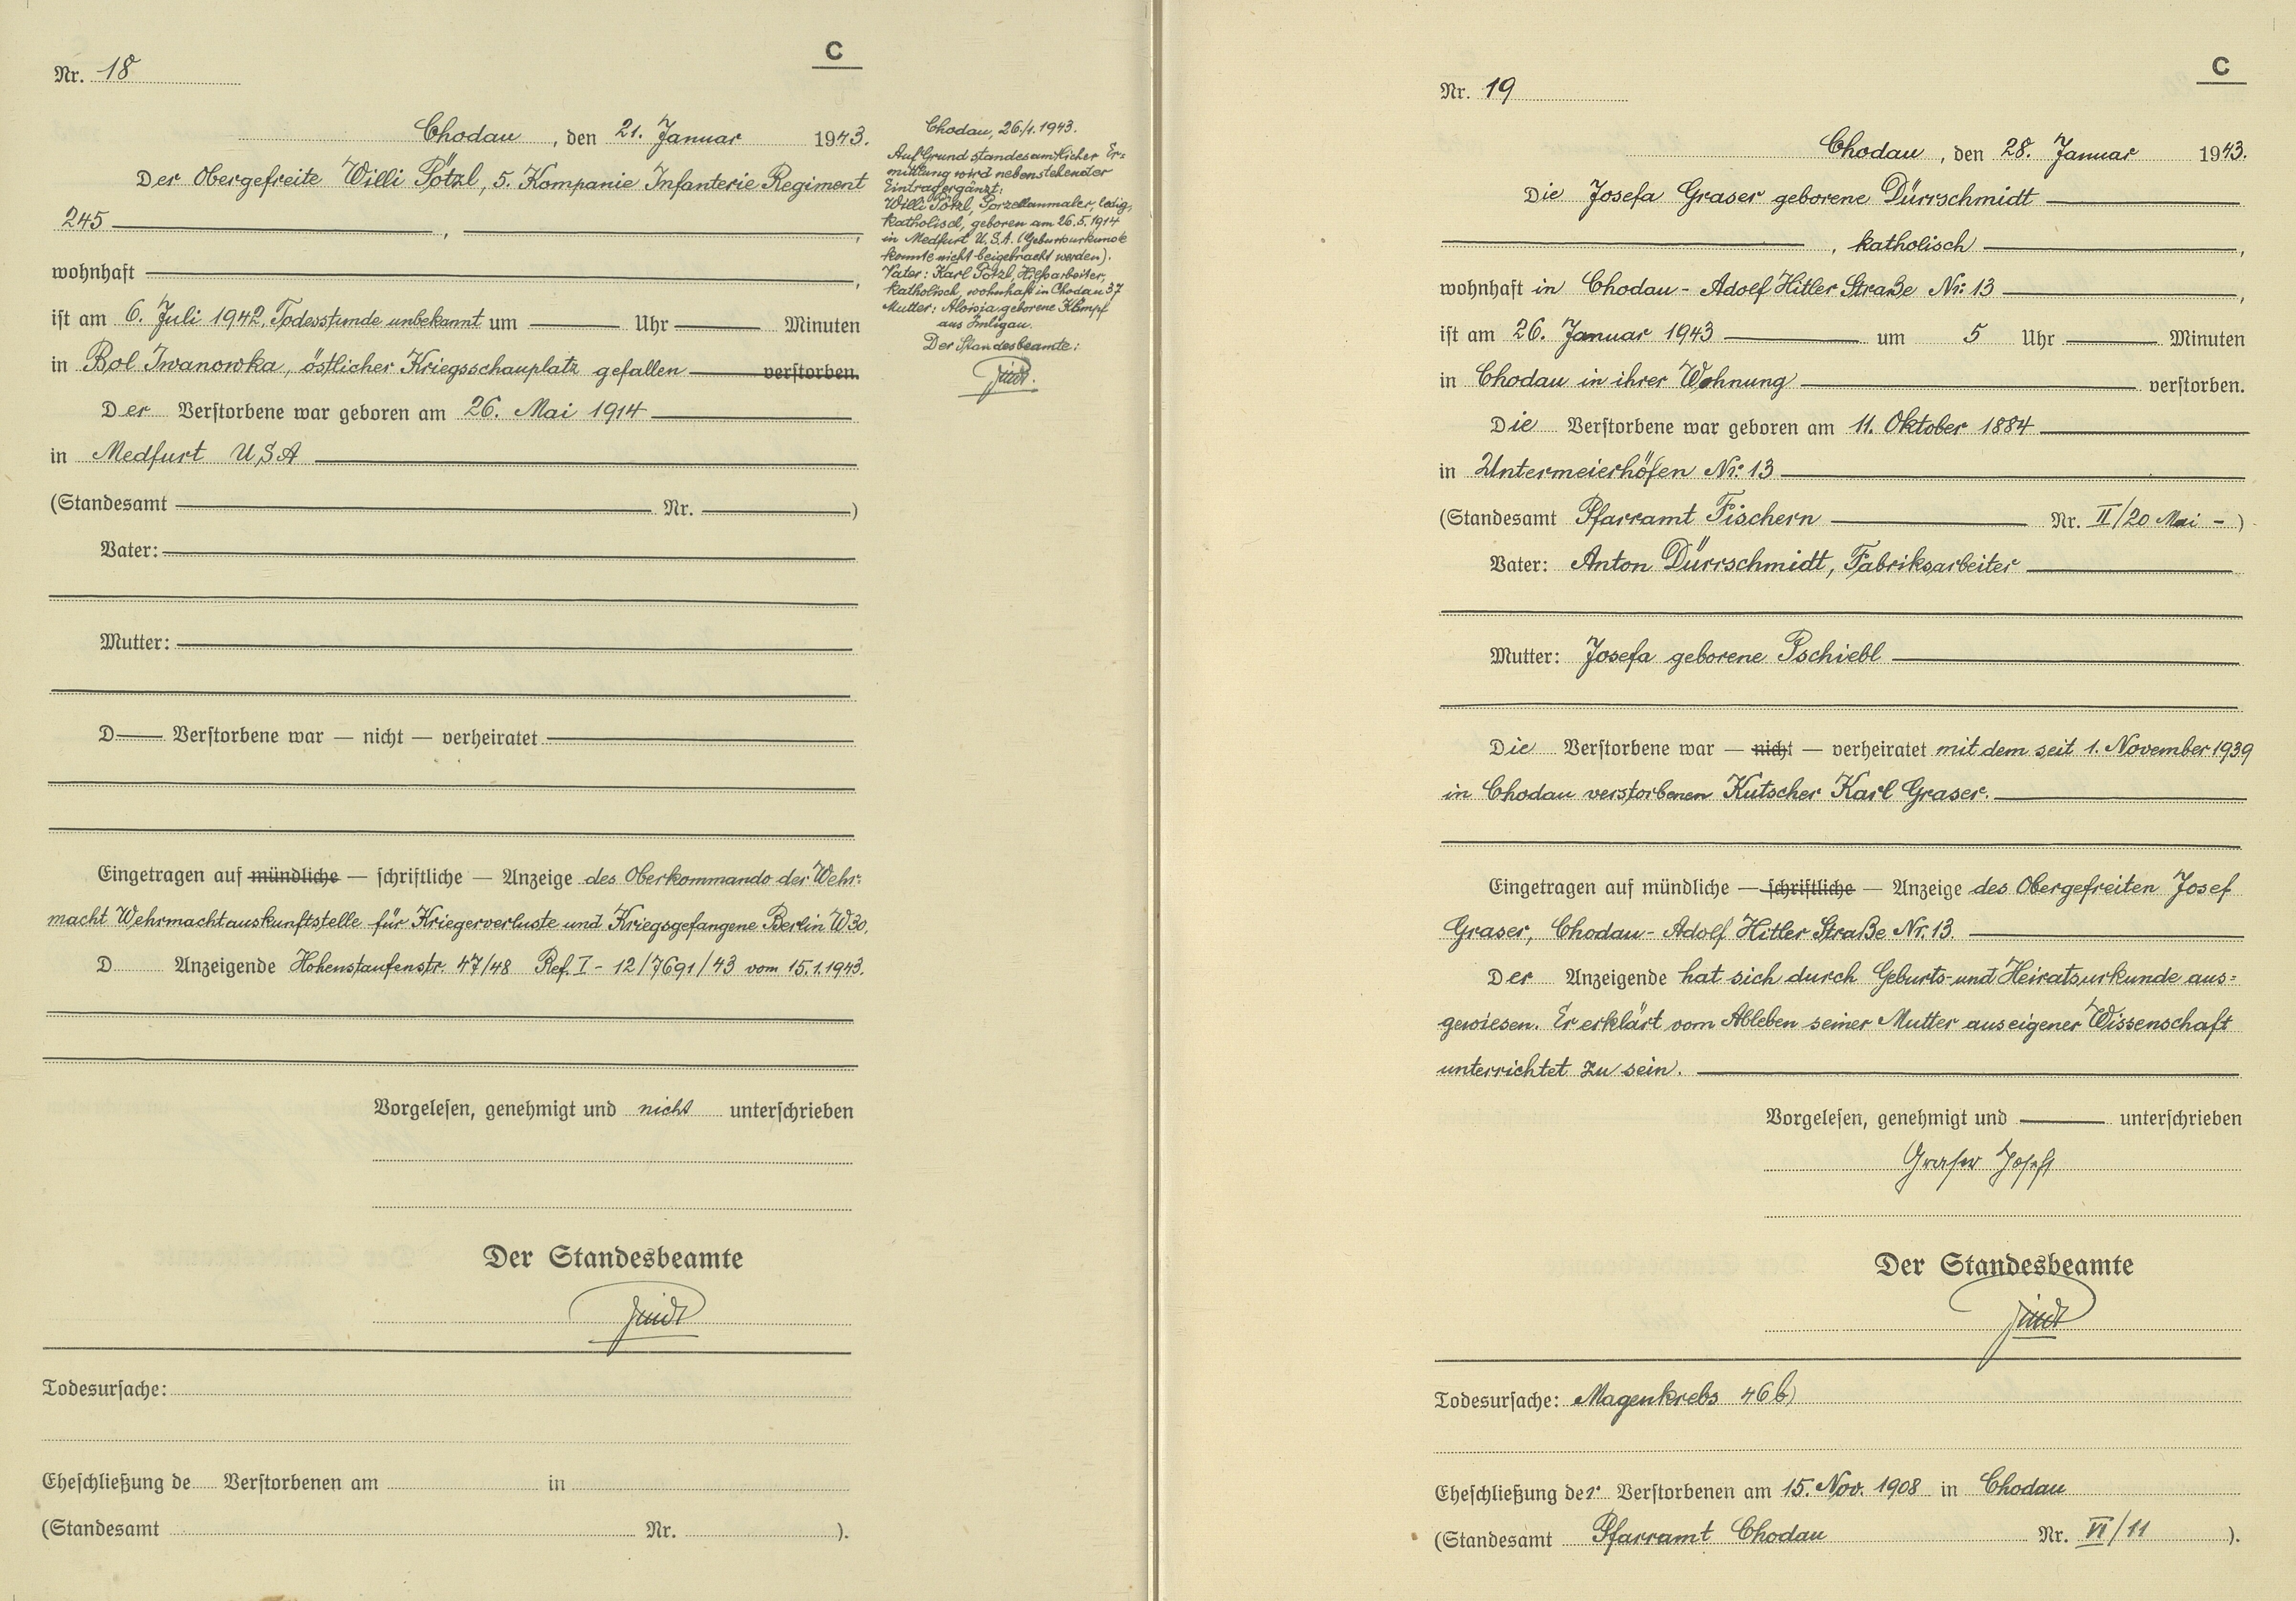 C
Nr. 18
Chodau, den 21. Januar 1943.
Der Obergefreite Willi Pötzl, 5. Kompanie Infanterie Regiment
245 ,
wohnhaft ,
ist am 6. Juli 1942, Todesstunde unbekannt um Uhr Minuten
in Bol Iwanowka, östlicher Kriegsschauplatz gefallen verstorben.
Der Verstorbene war geboren am 26. Mai 1914
in Medfurt USA
(Standesamt Nr. )
Vater:
Mutter:
D Verstorbene war — nicht — verheiratet
Eingetragen auf mündliche — schriftliche — Anzeige des Oberkommando der Wehr-
macht Wehrmachtauskunftstelle für Kriegerverluste und Kriegsgefangene Berlin W30,
D Anzeigende Hohenstaufenstr. 47/48 Ref. I - 12/7691/43 vom 15.1.1943.
Vorgelesen, genehmigt und nicht unterschrieben
Der Standesbeamte
Todesursache:
Eheschließung de Verstorbenen am in
(Standesamt Nr. ).
Chodau, 26./1.1943.
Auf Grund standesamtlicher Er=
mittlung wird nebenstehender
Eintrag ergänzt:
Willi Pötzl, Porzellanmaler, ledig,
katholisch, geboren am 26.5.1914
in Medfurt U.S.A. (Geburtsurkunde
konnte nicht beigebracht werden).
Vater: Karl Pötzl, Hilfsarbeiter,
katholisch, wohnhaft in Chodau 37
Mutter: Aloisia geborene Klempf
aus Imligau.
Der Standesbeamte:
C
Nr. 19
Chodau, den 28. Januar 1943.
Die Josefa Graser geborene Dürrschmidt
, katholisch ,
wohnhaft in Chodau - Adolf Hitler Straße Nr: 13 ,
ist am 26. Januar 1943 um 5 Uhr Minuten
in Chodau in ihrer Wohnung verstorben.
Die Verstorbene war geboren am 11. Oktober 1884
in Untermeierhöfen Nr: 13
(Standesamt Pfarramt Fischern Nr. II/20 Mai - )
Vater: Anton Dürrschmidt, Fabriksarbeiter
Mutter: Josefa geborene Pschiebl
Die Verstorbene war — nicht — verheiratet mit dem seit 1. November 1939
in Chodau verstorbenen Kutscher Karl Graser.
Eingetragen auf mündliche — schriftliche — Anzeige des Obergefreiten Josef
Graser, Chodau - Adolf Hitler Straße Nr. 13.
Der Anzeigende hat sich durch Geburts- und Heiratsurkunde aus=
gewiesen. Er erklärt vom Ableben seiner Mutter aus eigener Wissenschaft
unterrichtet zu sein.
Vorgelesen, genehmigt und unterschrieben
Graser Josef
Der Standesbeamte
Todesursache: Magenkrebs 46b)
Eheschließung der Verstorbenen am 15. Nov. 1908 in Chodau
(Standesamt Pfarramt Chodau Nr. VI/11 ).